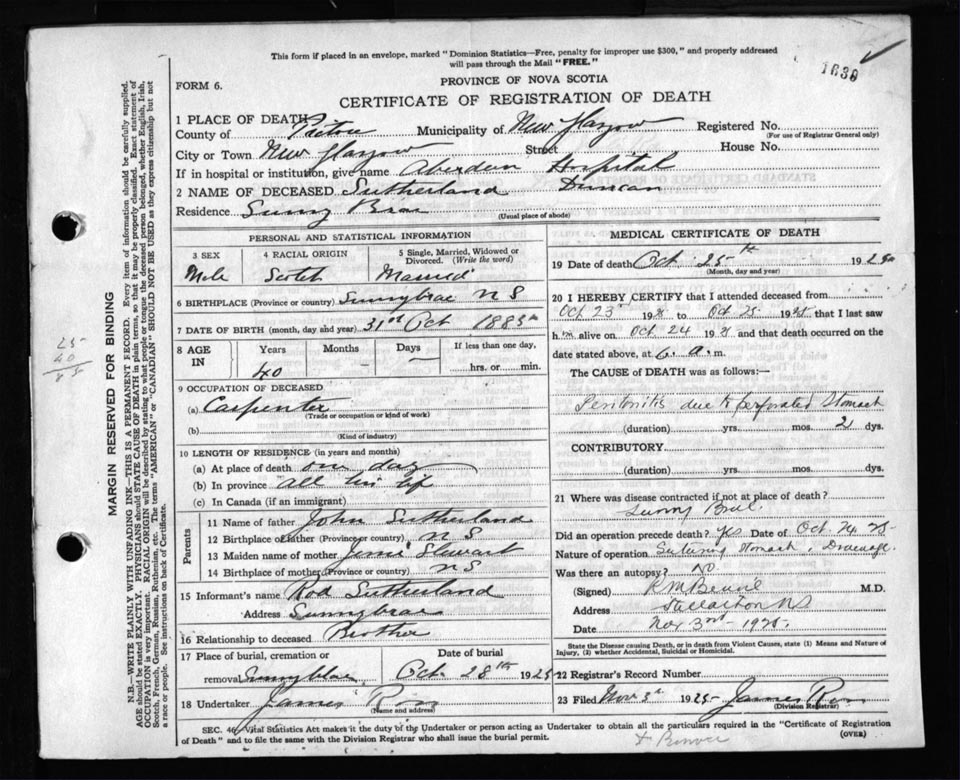 This form if placed in an envelope, marked "Dominion Statistics—Free, penalty for improper use $300," and properly addressed
will pass through the Mail "FREE."
1639
FORM 6.
PROVINCE OF NOVA SCOTIA
CERTIFICATE OF REGISTRATION OF DEATH
1 PLACE OF DEATH
County of Pictou Municipality of New Glasgow Registered No.
(For use of Registrar General only)
City or Town New Glasgow Street House No.
If in hospital or institution, give name Aberdeen Hospital
2 NAME OF DECEASED Sutherland Duncan
Residence Sunny Brae
(Usual place of abode)
PERSONAL AND STATISTICAL INFORMATION
3 SEX 4 RACIAL ORIGIN 5 Single, Married, Widowed or
Divorced. (Write the word)
Male Scotch Married
6 BIRTHPLACE (Province or country) Sunnybrae N S
7 DATE OF BIRTH (month, day and year) 31st Oct 1885
8 AGE IN Years Months Days If less than one day,
40 hrs. or min.
9 OCCUPATION OF DECEASED
(a) Carpenter
(Trade or occupation or kind of work)
(b)
(Kind of industry)
10 LENGTH OF RESIDENCE (in years and months)
(a) At place of death one day
(b) In province all his life
(c) In Canada (if an immigrant)
Parents
11 Name of father John Sutherland
12 Birthplace of father (Province or country) N S
13 Maiden name of mother Jessie Stewart
14 Birthplace of mother (Province or country) N S
15 Informant's name Rod Sutherland
Address Sunnybrae
16 Relationship to deceased Brother
17 Place of burial, cremation or Date of burial
removal Sunnybrae Oct 28th 1925
18 Undertaker James Ross
(Name and address)
MEDICAL CERTIFICATE OF DEATH
19 Date of death Oct 25th 1925
(Month, day and year)
20 I HEREBY CERTIFY that I attended deceased from
Oct 23rd 1925 to Oct 25 1925 that I last saw
him alive on Oct 24 1925 and that death occurred on the
date stated above, at 6 a. m.
The CAUSE of DEATH was as follows:—
Peritonitis due to perforated Stomach
(duration) yrs. mos. 2 dys.
CONTRIBUTORY
(duration) yrs. mos. dys.
21 Where was disease contracted if not at place of death?
Sunny Brae
Did an operation precede death? Yes Date of Oct. 24 25
Nature of operation Suturing Stomach, Drainage
Was there an autopsy? No
(Signed) M.D.
Address Stellarton NS
Date Nov 3rd 1925
State the Disease causing Death, or in death from Violent Causes, state (1) Means and Nature of
Injury, (2) whether Accidental, Suicidal or Homicidal.
22 Registrar's Record Number
23 Filed Nov 3rd 1925 James Ross
(Division Registrar)
SEC. 46 Vital Statistics Act makes it the duty of the Undertaker or person acting as Undertaker to obtain all the particulars required in the "Certificate of Registration
of Death" and to file the same with the Division Registrar who shall issue the burial permit.
(OVER)
MARGIN RESERVED FOR BINDING
N.B.—WRITE PLAINLY WITH UNFADING INK—THIS IS A PERMANENT RECORD. Every item of information should be carefully supplied.
AGE should be stated EXACTLY. PHYSICIANS should STATE CAUSE OF DEATH in plain terms, so that it may be properly classified. Exact statement of
OCCUPATION is very important. RACIAL ORIGIN will be described by stating to what people or tongue the deceased person belonged, whether English, Irish,
Scotch, French, German, Russian, Ruthenian, etc. The terms "AMERICAN" or "CANADIAN" SHOULD NOT BE USED as they express citizenship but not
a race or people. See instructions on back of Certificate.
25
40
85